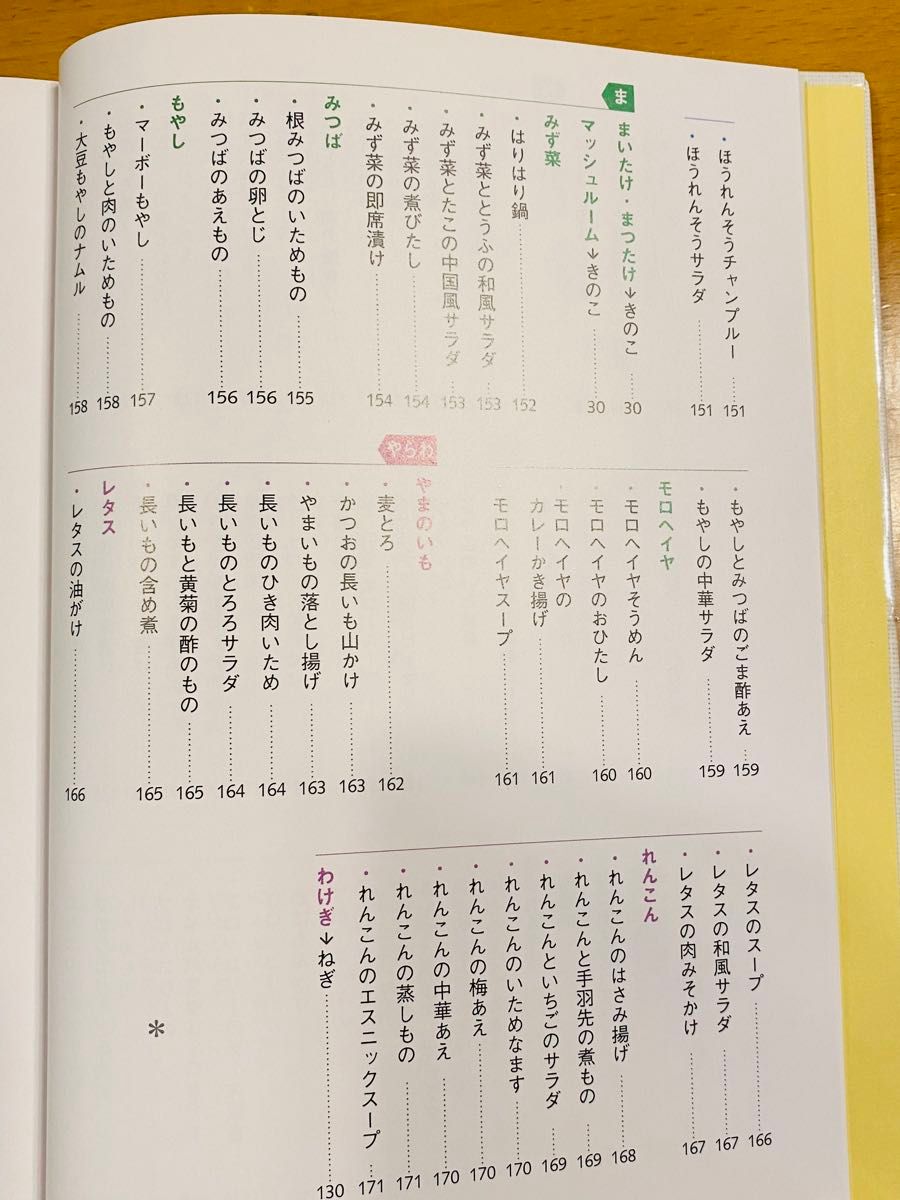 ・ほうれんそうチャンプルー ……151
・ほうれんそうサラダ ……151
ま
まいたけ・まつたけ→きのこ ……30
マッシュルーム→きのこ ……30
みず菜
・はりはり鍋 ……152
・みず菜ととうふの和風サラダ ……153
・みず菜とたこの中国風サラダ ……153
・みず菜の煮びたし ……154
・みず菜の即席漬け ……154
みつば
・根みつばのいためもの ……155
・みつばの卵とじ ……156
・みつばのあえもの ……156
もやし
・マーボーもやし ……157
・もやしと肉のいためもの ……158
・大豆もやしのナムル ……158
・もやしとみつばのごま酢あえ ……159
・もやしの中華サラダ ……159
モロヘイヤ
・モロヘイヤそうめん ……160
・モロヘイヤのおひたし ……160
・モロヘイヤの
カレーかき揚げ ……161
・モロヘイヤスープ ……161
やらわ
やまのいも
・麦とろ ……162
・かつおの長いも山かけ ……163
・やまいもの落とし揚げ ……163
・長いものひき肉いため ……164
・長いものとろろサラダ ……164
・長いもと黄菊の酢のもの ……165
・長いもの含め煮 ……165
レタス
・レタスの油がけ ……166
・レタスのスープ ……166
・レタスの和風サラダ ……167
・レタスの肉みそかけ ……167
れんこん
・れんこんのはさみ揚げ ……168
・れんこんと手羽先の煮もの ……169
・れんこんといちごのサラダ ……169
・れんこんのいためなます ……170
・れんこんの梅あえ ……170
・れんこんの中華あえ ……170
・れんこんの蒸しもの ……171
・れんこんのエスニックスープ ……171
わけぎ→ねぎ ……130
＊